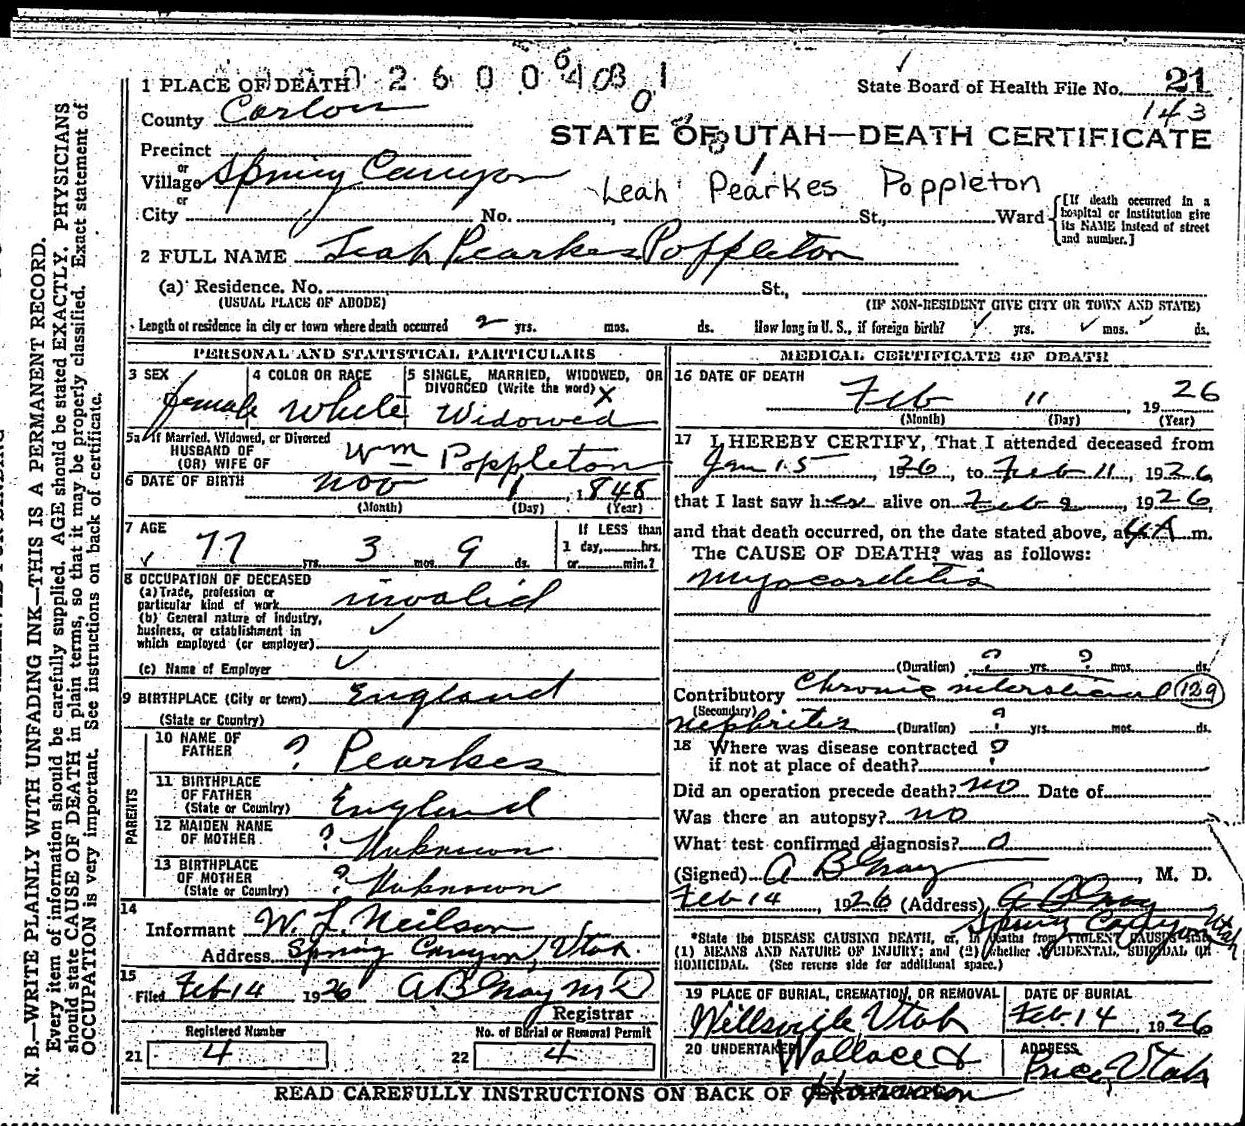 1 PLACE OF DEATH 0 2 6 0 0 6 4 0 3 1
0
State Board of Health File No. 21
143
County Carbon
STATE OF UTAH—DEATH CERTIFICATE
Precinct
or
Village Spring Canyon
Leah Pearkes Poppleton
or
City No. , St., Ward
[If death occurred in a hospital or institution give its NAME instead of street and number.]
2 FULL NAME Leah Pearkes Poppleton
(a) Residence. No. St.,
(USUAL PLACE OF ABODE) (IF NON-RESIDENT GIVE CITY OR TOWN AND STATE)
Length of residence in city or town where death occurred 2 yrs. mos. ds. How long in U. S., if foreign birth? ✓ yrs. ✓ mos. ✓ ds.
PERSONAL AND STATISTICAL PARTICULARS
3 SEX
female
4 COLOR OR RACE
White
5 SINGLE, MARRIED, WIDOWED, OR
DIVORCED (Write the word) X
Widowed
5a If Married, Widowed, or Divorced
HUSBAND OF
(OR) WIFE OF Wm Poppleton
6 DATE OF BIRTH Nov 1, 1848
(Month) (Day) (Year)
7 AGE
✓ 77 yrs. 3 mos. 9 ds.
If LESS than
1 day, hrs.
or min.?
8 OCCUPATION OF DECEASED
(a) Trade, profession or
particular kind of work invalid
(b) General nature of industry,
business, or establishment in
which employed (or employer) ✓
(c) Name of Employer ✓
9 BIRTHPLACE (City or town) England
(State or Country)
PARENTS
10 NAME OF
FATHER ? Pearkes
11 BIRTHPLACE
OF FATHER
(State or Country) England
12 MAIDEN NAME
OF MOTHER ? Unknown
13 BIRTHPLACE
OF MOTHER
(State or Country) ? Unknown
14
Informant W. L. Neilson
Address Spring Canyon, Utah.
15
Filed Feb 14 1926 A B Gray M D
Registrar
Registered Number
21 4
No. of Burial or Removal Permit
22 4
MEDICAL CERTIFICATE OF DEATH
16 DATE OF DEATH
Feb 11, 1926
(Month) (Day) (Year)
17 I HEREBY CERTIFY, That I attended deceased from
Jan 15, 1926, to Feb 11, 1926
that I last saw her alive on Feb 9, 1926,
and that death occurred, on the date stated above, at 4 A m.
The CAUSE OF DEATH* was as follows:
Myocarditis
(Duration) ? yrs. ? mos. ds.
Contributory Chronic interstitial 129
(Secondary)
nephritis (Duration) ? yrs. mos. ds.
18 Where was disease contracted
if not at place of death? ?
Did an operation precede death? no Date of
Was there an autopsy? no
What test confirmed diagnosis? 0
(Signed) A B Gray, M. D.
Feb 14, 1926 (Address) A B Gray
Spring Canyon Utah
*State the DISEASE CAUSING DEATH, or, in deaths from VIOLENT CAUSES state
(1) MEANS AND NATURE OF INJURY; and (2) whether ACCIDENTAL, SUICIDAL OR
HOMICIDAL. (See reverse side for additional space.)
19 PLACE OF BURIAL, CREMATION, OR REMOVAL
Wellsville Utah
DATE OF BURIAL
Feb. 14, 1926
20 UNDERTAKER Wallace &
Harmon
ADDRESS
Price, Utah
READ CAREFULLY INSTRUCTIONS ON BACK OF CERTIFICATE
N. B.—WRITE PLAINLY WITH UNFADING INK—THIS IS A PERMANENT RECORD.
Every item of information should be carefully supplied. AGE should be stated EXACTLY. PHYSICIANS
should state CAUSE OF DEATH in plain terms, so that it may be properly classified. Exact statement of
OCCUPATION is very important. See instructions on back of certificate.